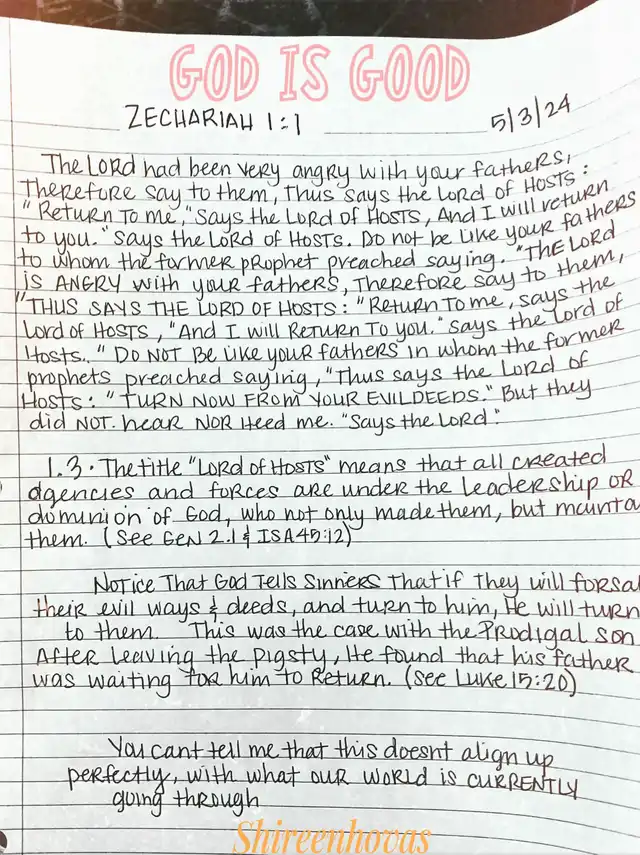 GOD IS GOOD
ZECHARIAH 1:1
5/3/24
The LORD had been very angry with your fathers,
Therefore say to them, Thus says the Lord of HOSTS:
"Return To me," says the Lord of HOSTS, And I will return
to you." says the Lord of HOSTS. Do not be like your fathers
to whom the former prophet preached saying. "THE LORD
IS ANGRY with your fathers, Therefore say to them,
"THUS SAYS THE LORD OF HOSTS: "Return To me, says the
Lord of HOSTS, "And I will Return To you." says the Lord of
Hosts.." DO NOT Be like your fathers in whom the former
prophets preached saying, "Thus says the Lord of
HOSTS: "TURN NOW FROM YOUR EVIL DEEDS." But they
did NOT hear NOR Heed me. "Says the Lord".
1.3. The title "LORD of HOSTS" means that all created
agencies and forces are under the leadership OR
dominion of God, who not only made them, but mainta
them. (See GEN 2.1 & ISA 45:12)
Notice That God Tells Sinners That if They will forsa
their evil ways & deeds, and turn to him, He will turn
to them. This was the case with the Prodigal son
After leaving the pigsty, He found that his father
was waiting for him to Return. (See Luke 15:20)
You cant tell me that this doesnt align up
perfectly, with what our world is currently
going through
Shireenhovas